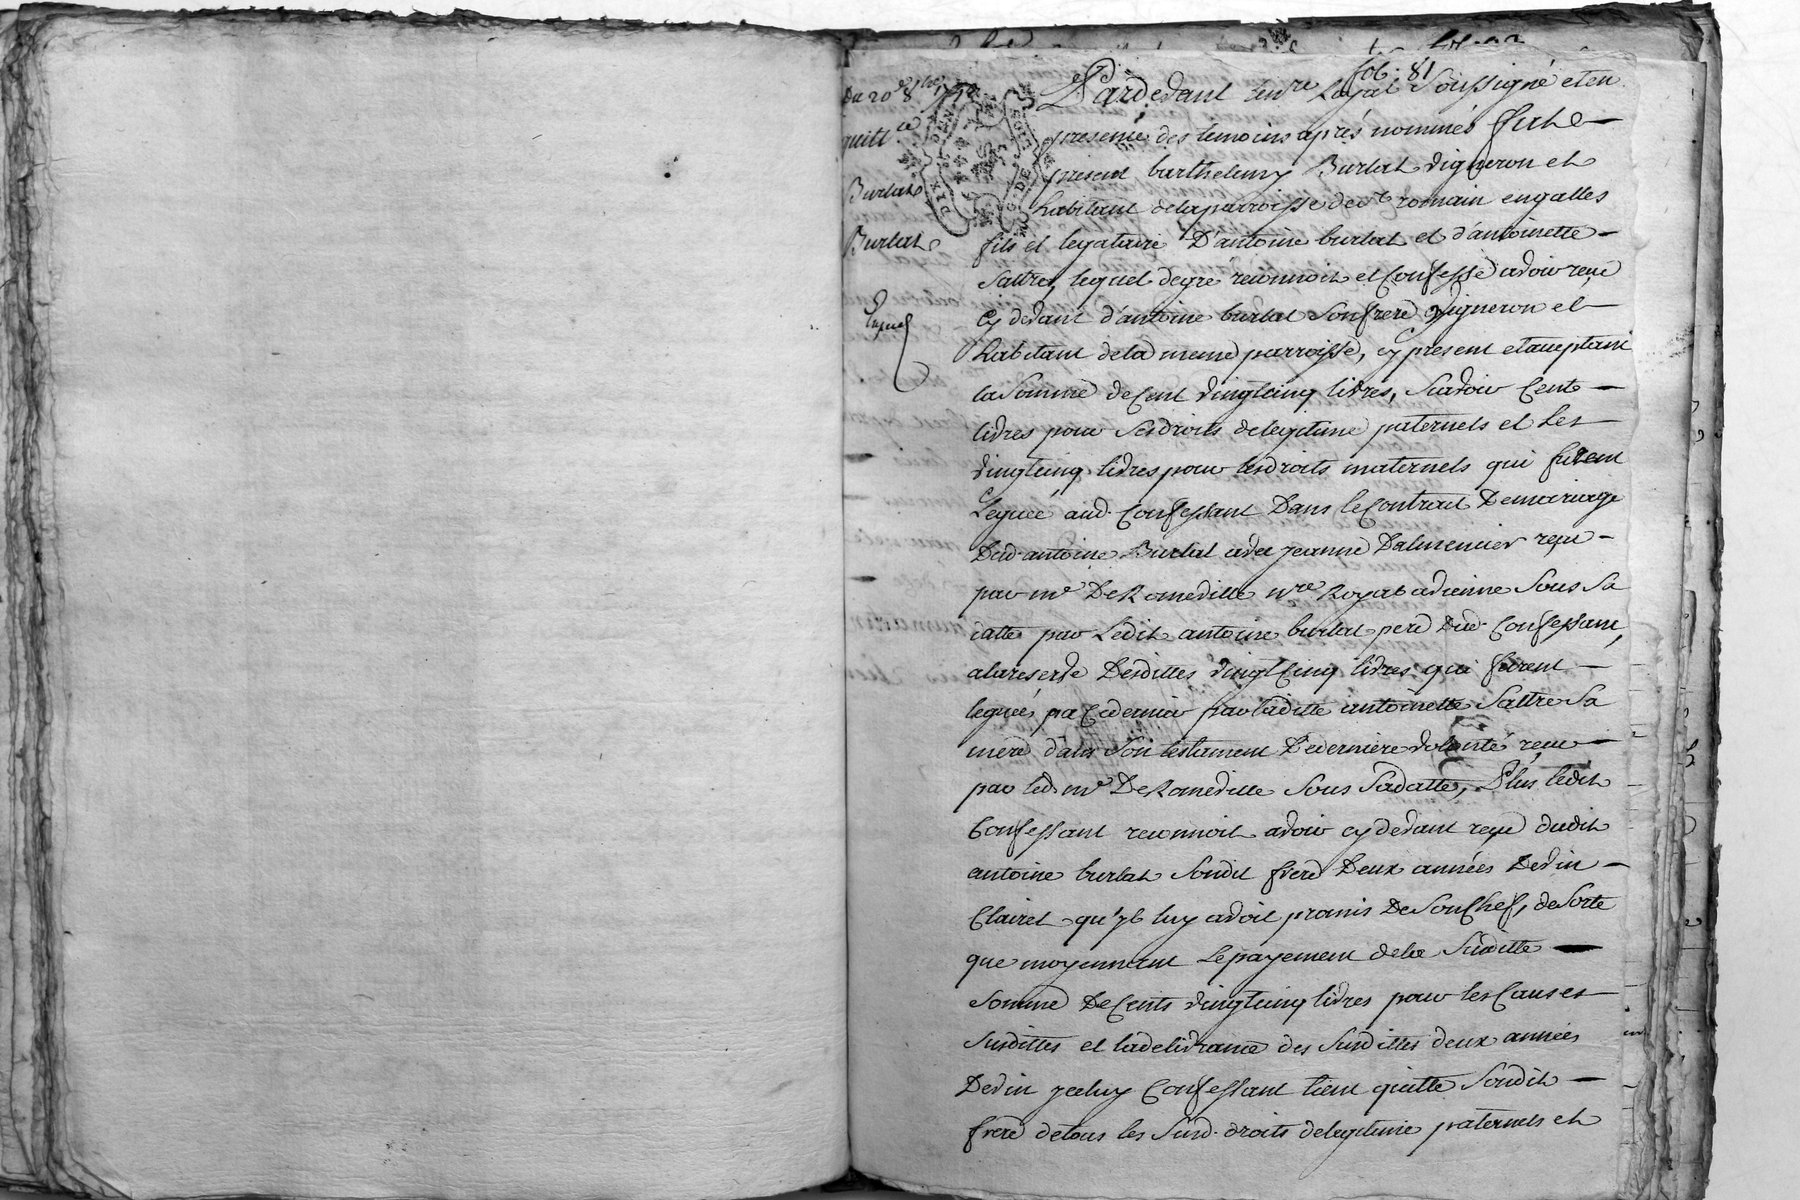 fol. 81
Du 20 8bre
quitt.ce
Burlat
Burlat
DIX DEN
Pardevant le nre Royal Soussigné et en
presence des temoins après nommés fut
present barthelemy Burlat vigneron et
habitant de la parroisse de St romain en galles
fils et legataire D'antoine burlat et d'antoinette
Sattre, lequel de gré reconnoit et Confesse avoir reçu
Cy devant d'antoine burlat Son frere vigneron et
habitant de la meme parroisse, cy present et acceptant
la Somme de Cent vingt cinq livres, Savoir Cent
livres pour Ses droits de legitime paternels et Les
vingt cinq livres pour les droits maternels qui furent
Legués aud. Confessant Dans le Contrat De mariage
Dud. antoine Burlat avec jeanne Dalmencier reçu
par me De Romeville nre Royal a vienne Sous Sa
datte par Ledit antoine burlat pere Dud. Confessant,
a la reserve Desdittes vingt Cinq livres qui furent
legués a Ce dernier par laditte antoinette Sattre Sa
mere dans Son testament De derniere volonté reçu
par led. me De Romeville Sous Sa datte, Plus ledit
Confessant reconnoit avoir cy devant reçu dudit
antoine burlat Sondit frere Deux années De vin
Clairet qu'yl luy avoit promis De Son Chef, de Sorte
que moyennant Le payement de la Susditte
Somme De Cents vingt cinq livres pour les Causes
Susdittes et la delivrance des Susdittes deux années
De vin yceluy Confessant tient quitte Sondit
frere de tous les Susd. droits de legitime paternels et